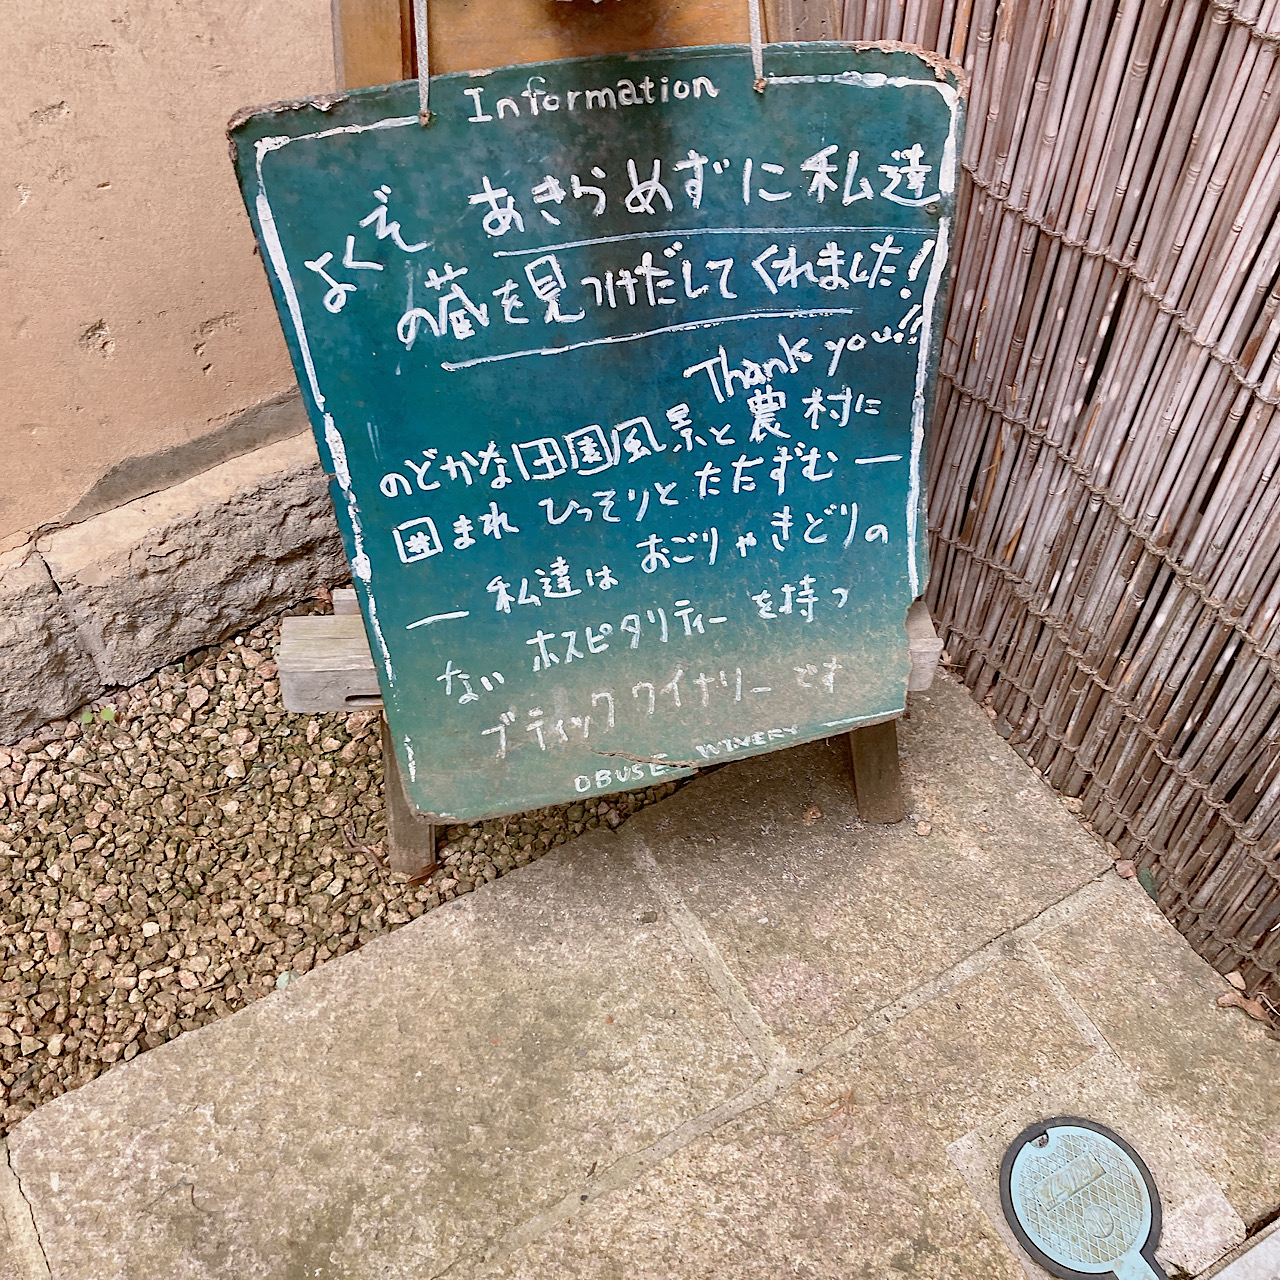 Information
よくぞ あきらめずに私達
の蔵を見つけだしてくれました!
Thank you!!
のどかな田園風景と農村に
囲まれ ひっそりと たたずむ ー
ー 私達は おごりやきどりの
ない ホスピタリティーを持つ
ブティックワイナリーです
OBUSE WINERY